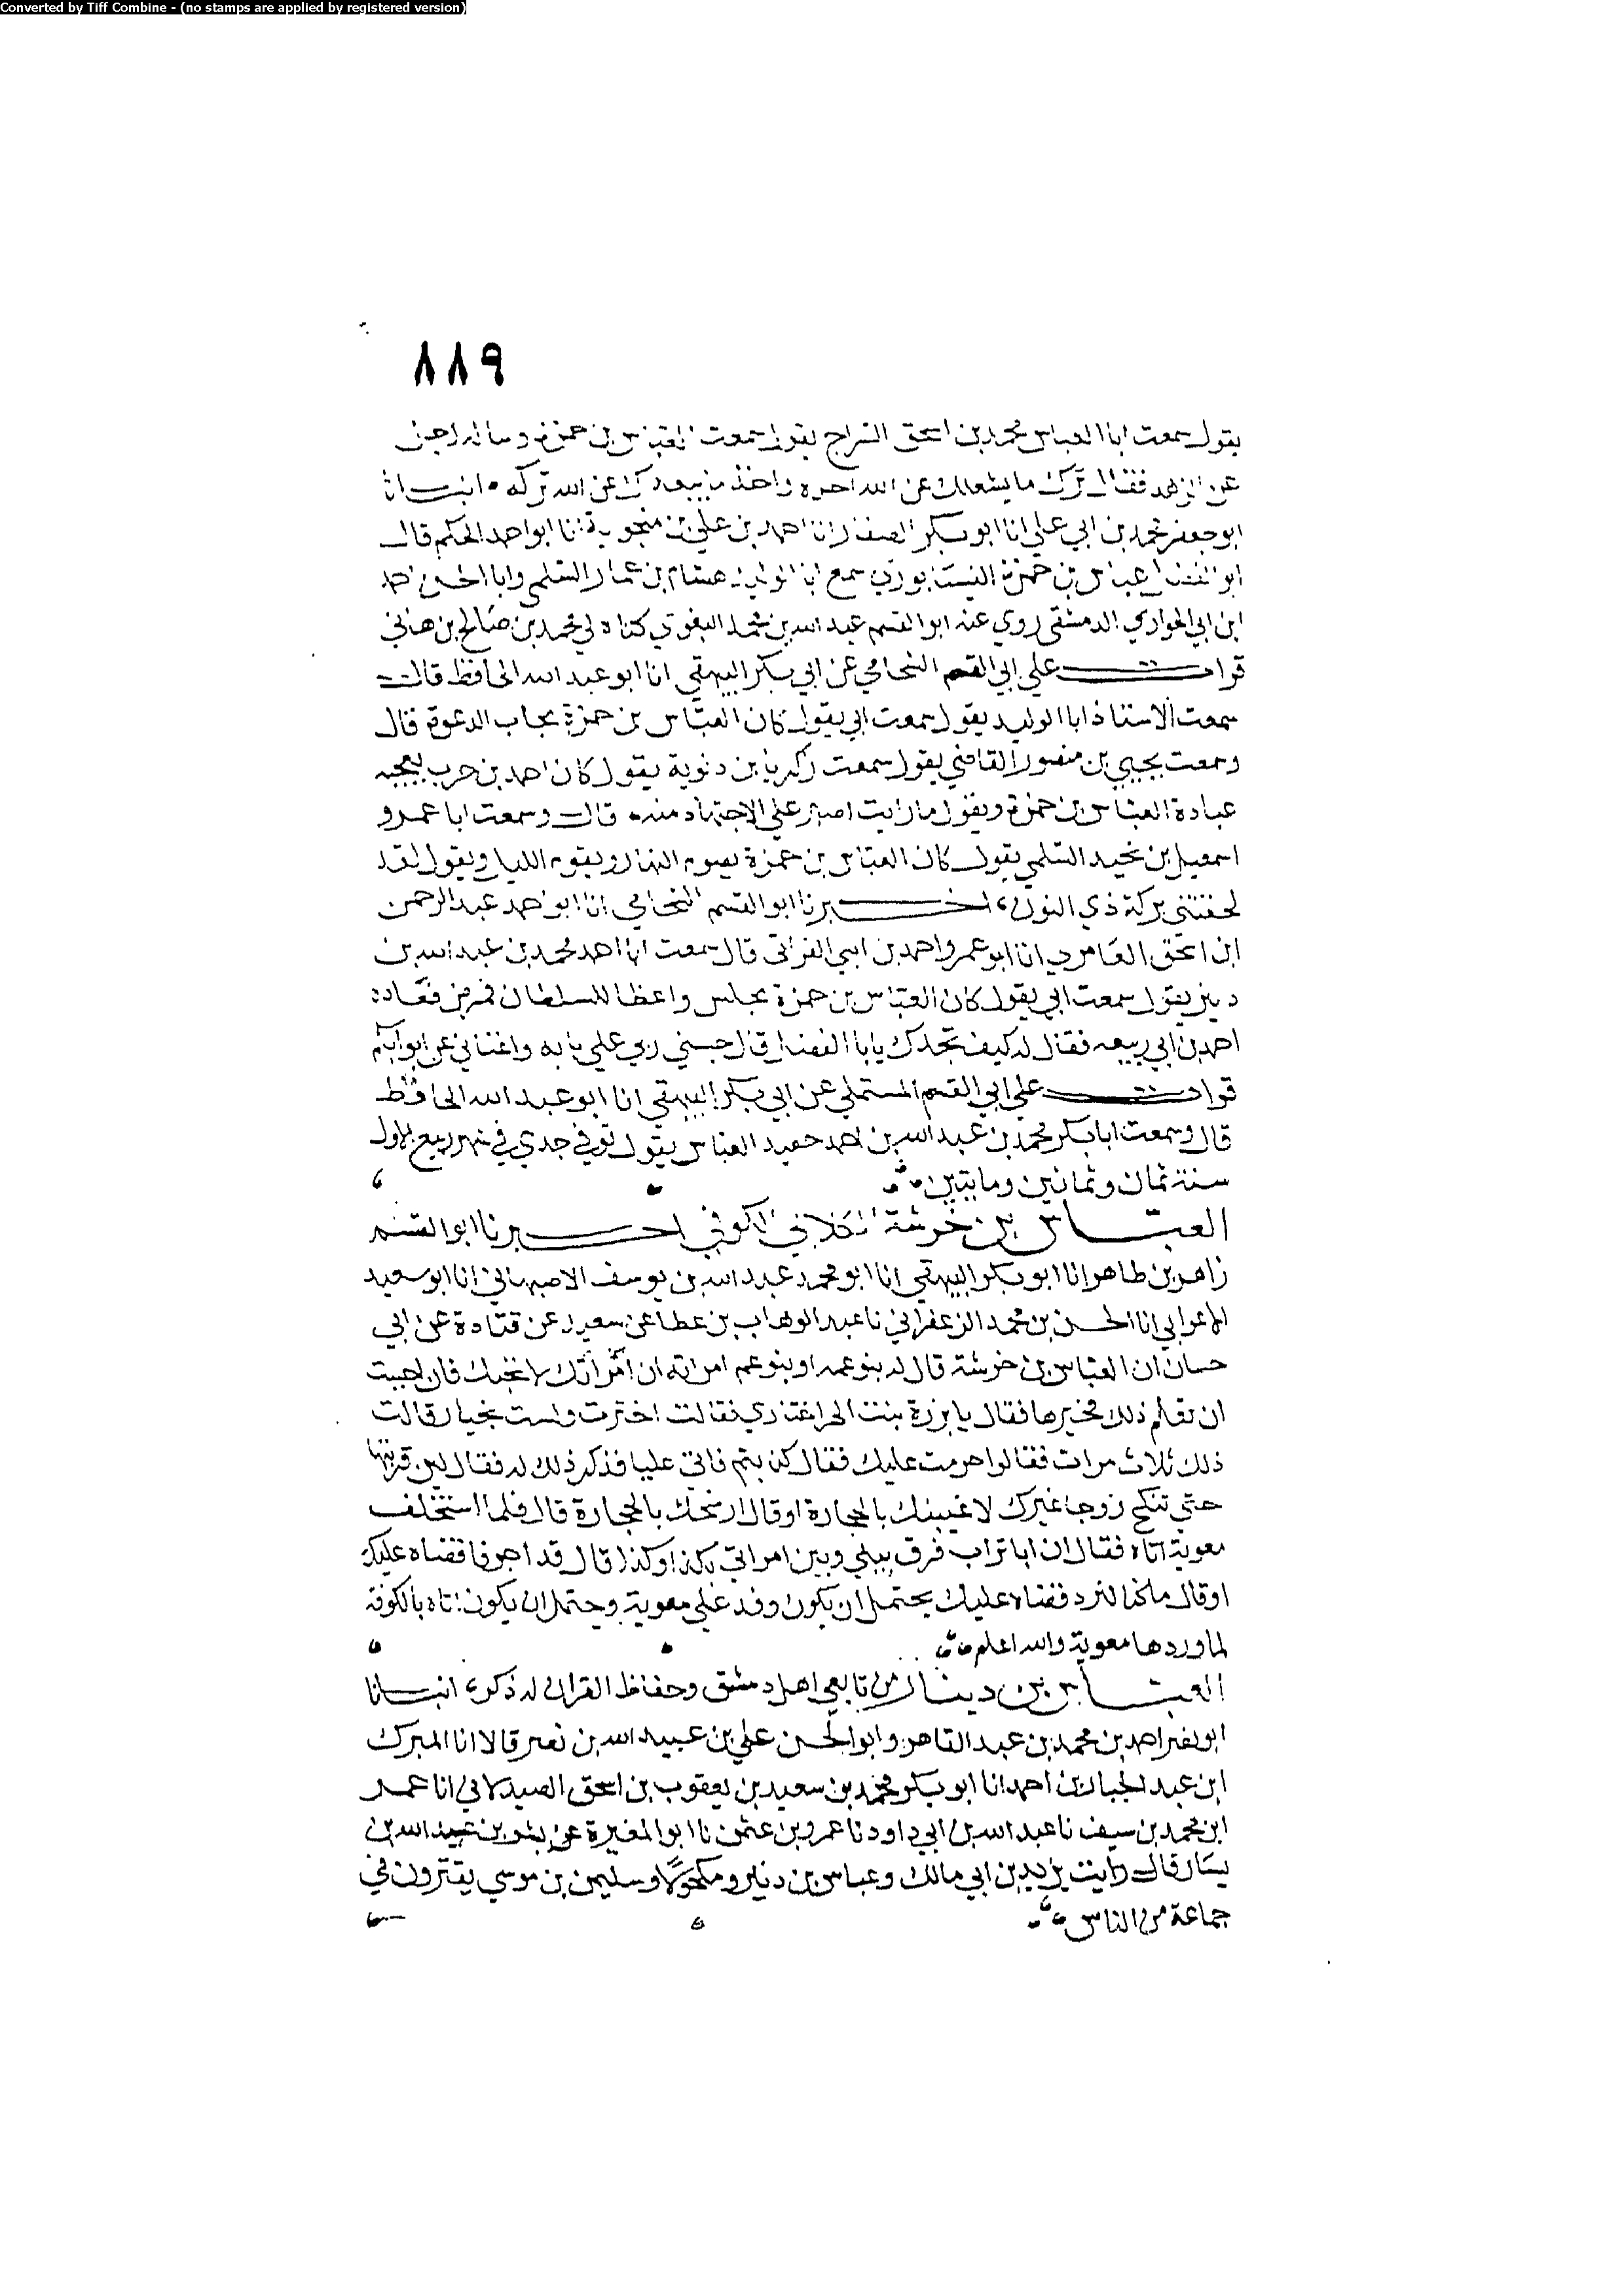 Converted by Tiff Combine - (no stamps are applied by registered version)
٨٨٩
يقول سمعت ابا العباس محمد بن اسحق السراج يقول سمعت العباس بن حمزة وساله رجل
عن الزهد فقال ترك ما يشغلك عن الله اخذه واخذ ما يبعدك عن الله تركه انبانا
ابو جعفر محمد بن ابي علي انا ابو بكر الصفار انا احمد بن علي بن منجوية انا ابو احمد الحكم قال
ابو الفضل عباس بن حمزة النيسابوري سمع ابا الوليد هشام بن عمار السلمي وابا الحسن احمد
ابن ابي الحواري الدمشقي روي عنه ابو القسم عبد الله بن محمد البغوي كناه لي محمد بن صالح بن هاني
قرات علي ابي القسم الشحامي عن ابي بكر البيهقي انا ابو عبد الله الحافظ قال
سمعت الاستاذ ابا الوليد يقول سمعت ابي يقول كان العباس بن حمزة مجاب الدعوة قال
وسمعت يحيي بن منصور القاضي يقول سمعت زكريا بن دنوية يقول كان احمد بن حرب يعجبه
عبادة العباس بن حمزة ويقول ما رايت اصبر علي الاجتهاد منه قال وسمعت ابا عمرو
اسمعيل بن نجيد السلمي يقول كان العباس بن حمزة يصوم النهار ويقوم الليل ويقول لقد
لحقتني بركة ذي النون اخبرنا ابو القسم الشحامي انا ابو احمد عبد الرحمن
ابن اسحق العامري انا ابو عمرو احمد بن ابي الفراتي قال سمعت ابا احمد محمد بن عبد الله بن
دينر يقول سمعت ابي يقول كان العباس بن حمزة يجلس واعظا للسلطان فمرض فعاده
احمد بن ابي ربيعه فقال له كيف تجدك يابا الفضل قال حبسني ربي علي بابه واغناني عن ابوابكم
قرات علي ابي القسم المستملي عن ابي بكر البيهقي انا ابو عبد الله الحافظ
قال وسمعت ابا بكر محمد بن عبد الله بن احمد حفيد العباس يقول توفي جدي في شهر ربيع الاول
سنة ثمان وثمانين ومايتين
العباس بن خرشة الكلابي الكوفي اخبرنا ابو القسم
زاهر بن طاهر انا ابو بكر البيهقي انا ابو محمد عبد الله بن يوسف الاصبهاني انا ابو سعيد
الاعرابي انا الحسن بن محمد الزعفراني نا عبد الوهاب بن عطا عن سعيد عن قتادة عن ابي
حسان ان العباس بن خرشة قال له بنو عمه او بنو عم امراته ان امراتك لا تحبك فان احببت
ان تعلم ذلك فخيرها فقال يا برزة بنت الحر اختاري فقالت اخترت ولست بخيار قالت
ذلك ثلاث مرات فقالوا حرمت عليك فقال كذبتم فاتي عليا فذكر ذلك له فقال لين قربتها
حتي تنكح زوجا غيرك لاغيبنك بالحجارة او قال ارضخك بالحجارة قال فلما استخلف
معوية اتاه فقال ان ابا تراب فرق بيني وبين امراتي بكذا وكذا قال قد اجزنا قضاه عليك
او قال ما كنا لنرد قضاه عليك يحتمل ان يكون وفد علي معوية ويحتمل ان يكون اتاه بالكوفة
لما وردها معوية والله اعلم
العباس بن دينار من تابعي اهل دمشق وحفاظ القران له ذكر انبانا
ابو نصر احمد بن محمد بن عبد القاهر وابو الحسن علي بن عبيد الله بن نصر قالا انا المبرك
ابن عبد الجبار بن احمد انا ابو بكر محمد بن سعيد بن يعقوب بن اسحق الصيدلاني انا عمر
ابن محمد بن سيف نا عبد الله بن ابي داود نا عمرو بن عثمن نا ابو المغيرة عن بشر بن عبيد الله بن
يسار قال رايت يزيد بن ابي مالك وعباس بن دينر ومكحولا وسليمن بن موسي يقترون في
جماعة من الناس